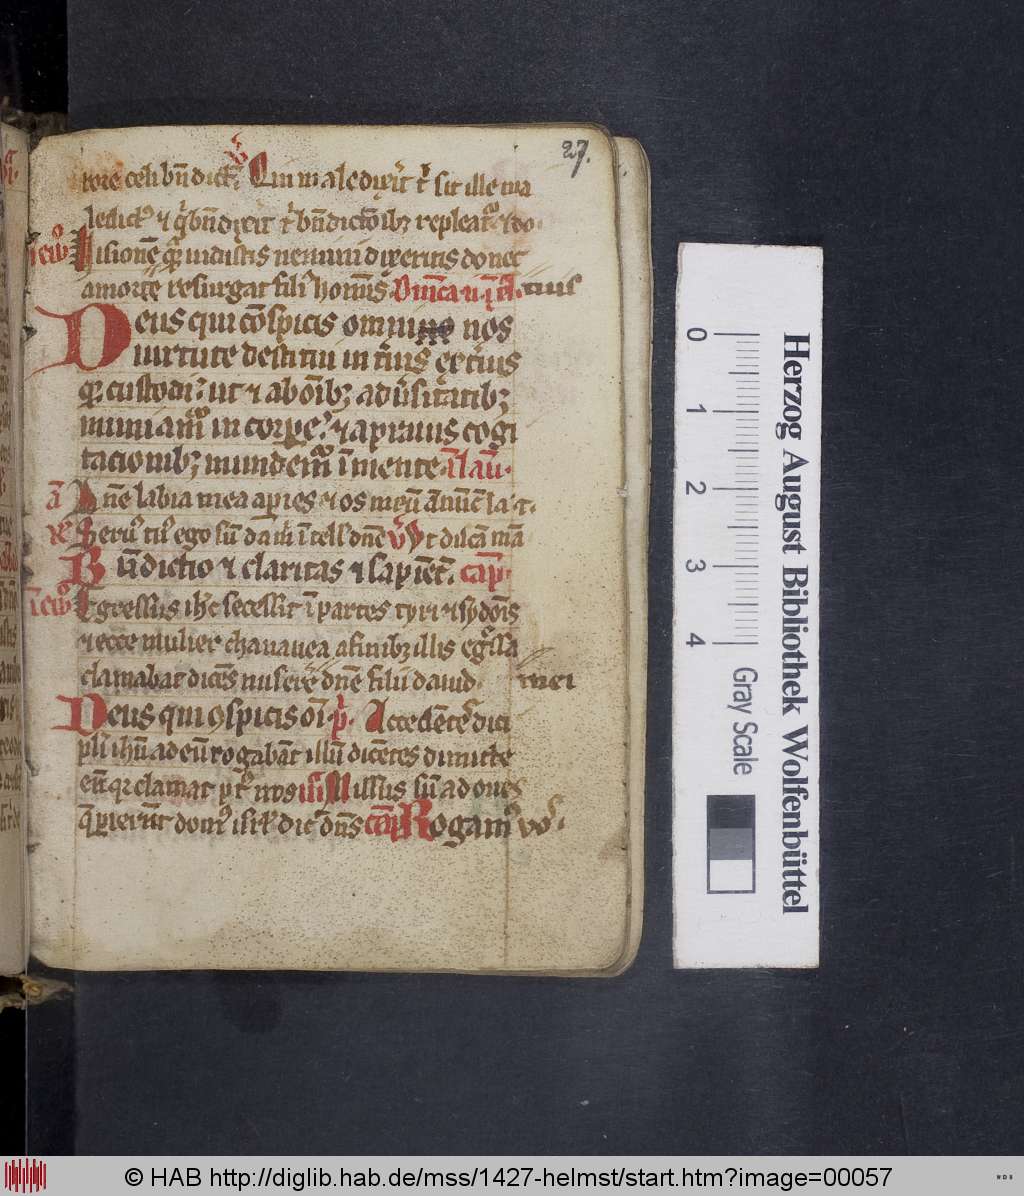 27.
rore celi bn̄dict. Qui maledixerit t' sit ille ma
ledict9 & q' bn̄dixerit t' bn̄dictōibz repleat̄
Visionē qm̄ uidistis nemini dixeritis donec
a mortē resurgat fili9 hōīnis
Deus qui cōspicis omni nos
uirtute destitui in t'ius ext'ius
q3 custodi ut & ab ōībz adu'sitatibz
muniam' in corpe & a prauis cogi
tacionibz mundem' ī mente ī lau.
ā Dn̄e labia mea apies & os meū
Seru9 tu9 ego sū da m ī tell' dn̄e
Bn̄dictio & claritas & sapiēt. cap.
Egressus ihc secessit ī partes tyri & sydōis
& ecce mulier chananea a finibz illis eg'ssa
clamabat dicēs misere dn̄e fili dauid mei
Deus qui 9spicis ōī p' Accedēte dici
pli ihū ad eū rogabāt illū dicētes dimitte
eā q3 clamat p9t nos Missus sū ad oues
q̄ perierūt dom9 isrl' dic dn̄s Rogam9
0 1 2 3 4
Gray Scale
Herzog August Bibliothek Wolfenbüttel
© HAB http://diglib.hab.de/mss/1427-helmst/start.htm?image=00057